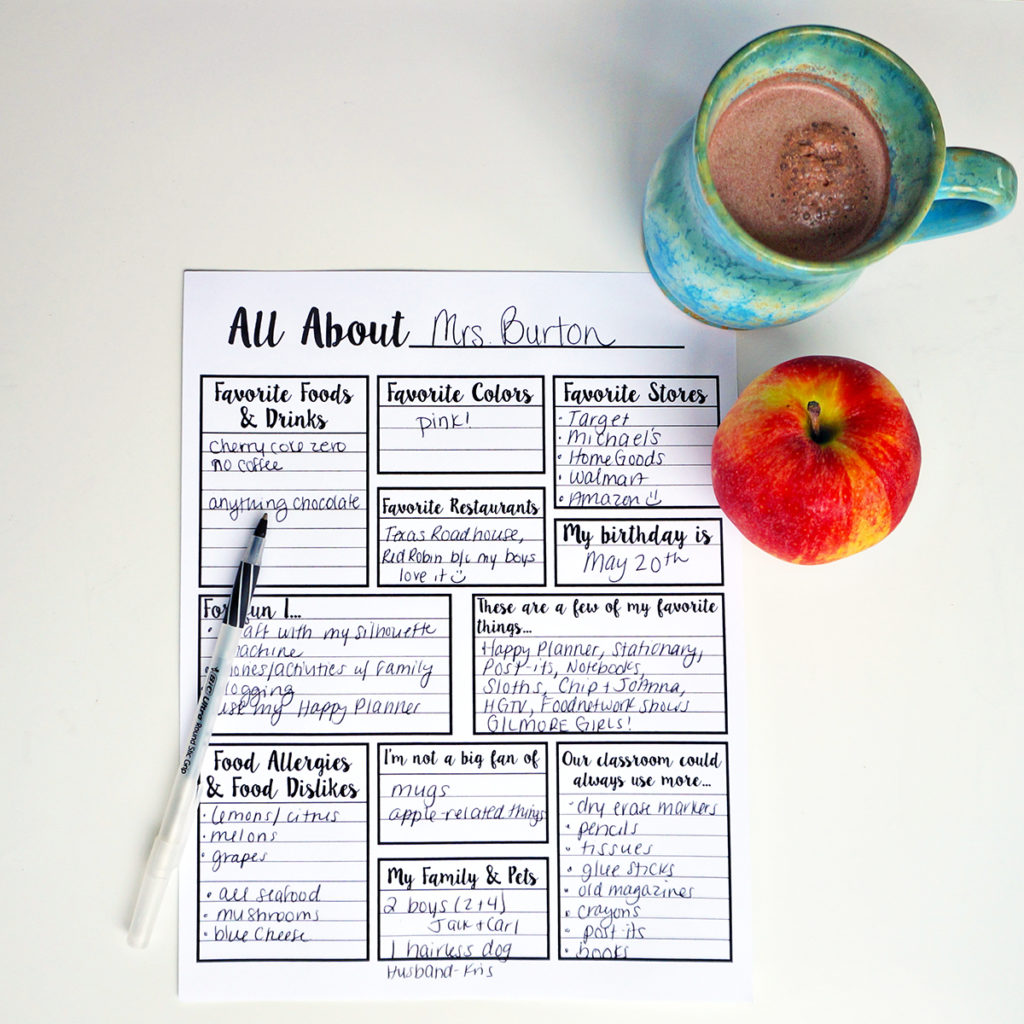 All About Mrs. Burton
Favorite Foods
& Drinks
Cherry coke zero
no coffee
anything chocolate
Favorite Colors
pink!
Favorite Stores
· Target
· Michael's
· HomeGoods
· Walmart
· Amazon
Favorite Restaurants
Texas Roadhouse,
Red Robin b/c my boys
love it
My birthday is
May 20th
For fun I...
with my silhouette
w/ family
my Happy Planner
These are a few of my favorite
things...
Happy Planner, Stationary,
Post-its, Notebooks,
Sloths, Chip + JoAnna,
HGTV, Foodnetwork shows
GILMORE GIRLS!
Food Allergies
& Food Dislikes
· lemons/citrus
· melons
· grapes
· all seafood
· mushrooms
· blue cheese
I'm not a big fan of
mugs
apple-related things
My Family & Pets
2 boys (2+4)
Jack + Carl
1 hairless dog
Husband-Kris
Our classroom could
always use more...
· dry erase markers
· pencils
· tissues
· glue sticks
· old magazines
· crayons
· post-its
· books
BIC Ultra Round Stic Grip